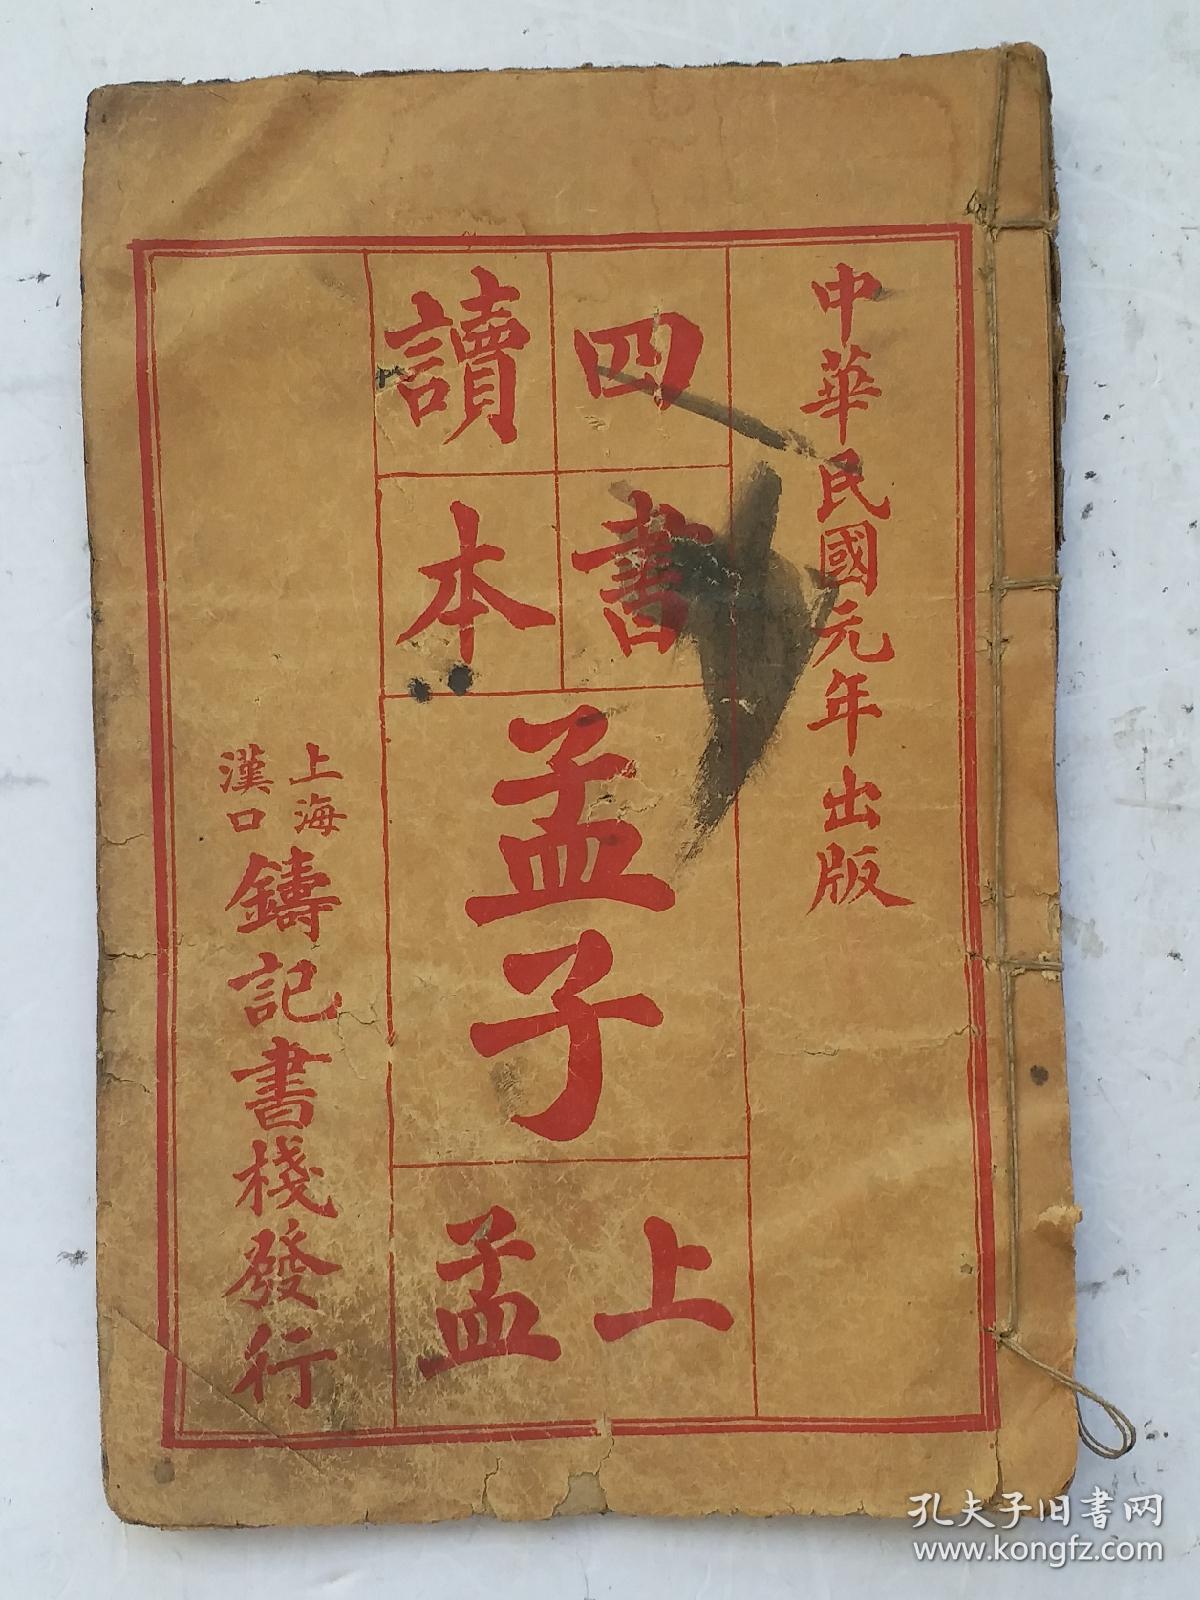 中華民國元年出版
四書
讀本
孟子
上孟
上海
漢口
鑄記書棧發行
孔夫子旧书网
www.kongfz.com